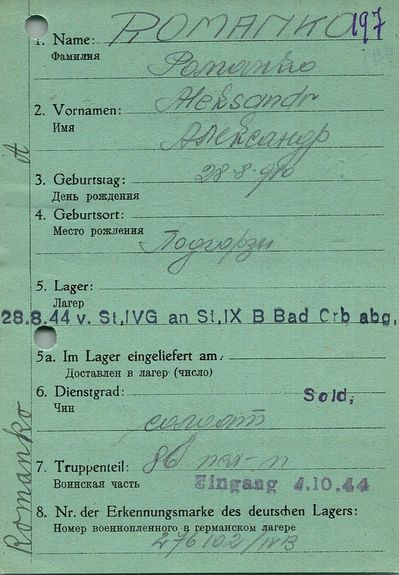 197
1. Name: ROMANKO
Фамилия Романко
2. Vornamen: Aleksandr
Имя Александр
3. Geburtstag: 28-8-910
День рождения
4. Geburtsort:
Место рождения
5. Lager:
Лагерь
28.8.44 v. St,IVG an St,IX B Bad Orb abg,
5a. Im Lager eingeliefert am:
Доставлен в лагерь (число)
6. Dienstgrad: Sold,
Чин солдат
7. Truppenteil: 86
Воинская часть Eingang 4.10.44
8. Nr. der Erkennungsmarke des deutschen Lagers:
Номер военнопленного в германском лагере
276102/IVB
Romanko A